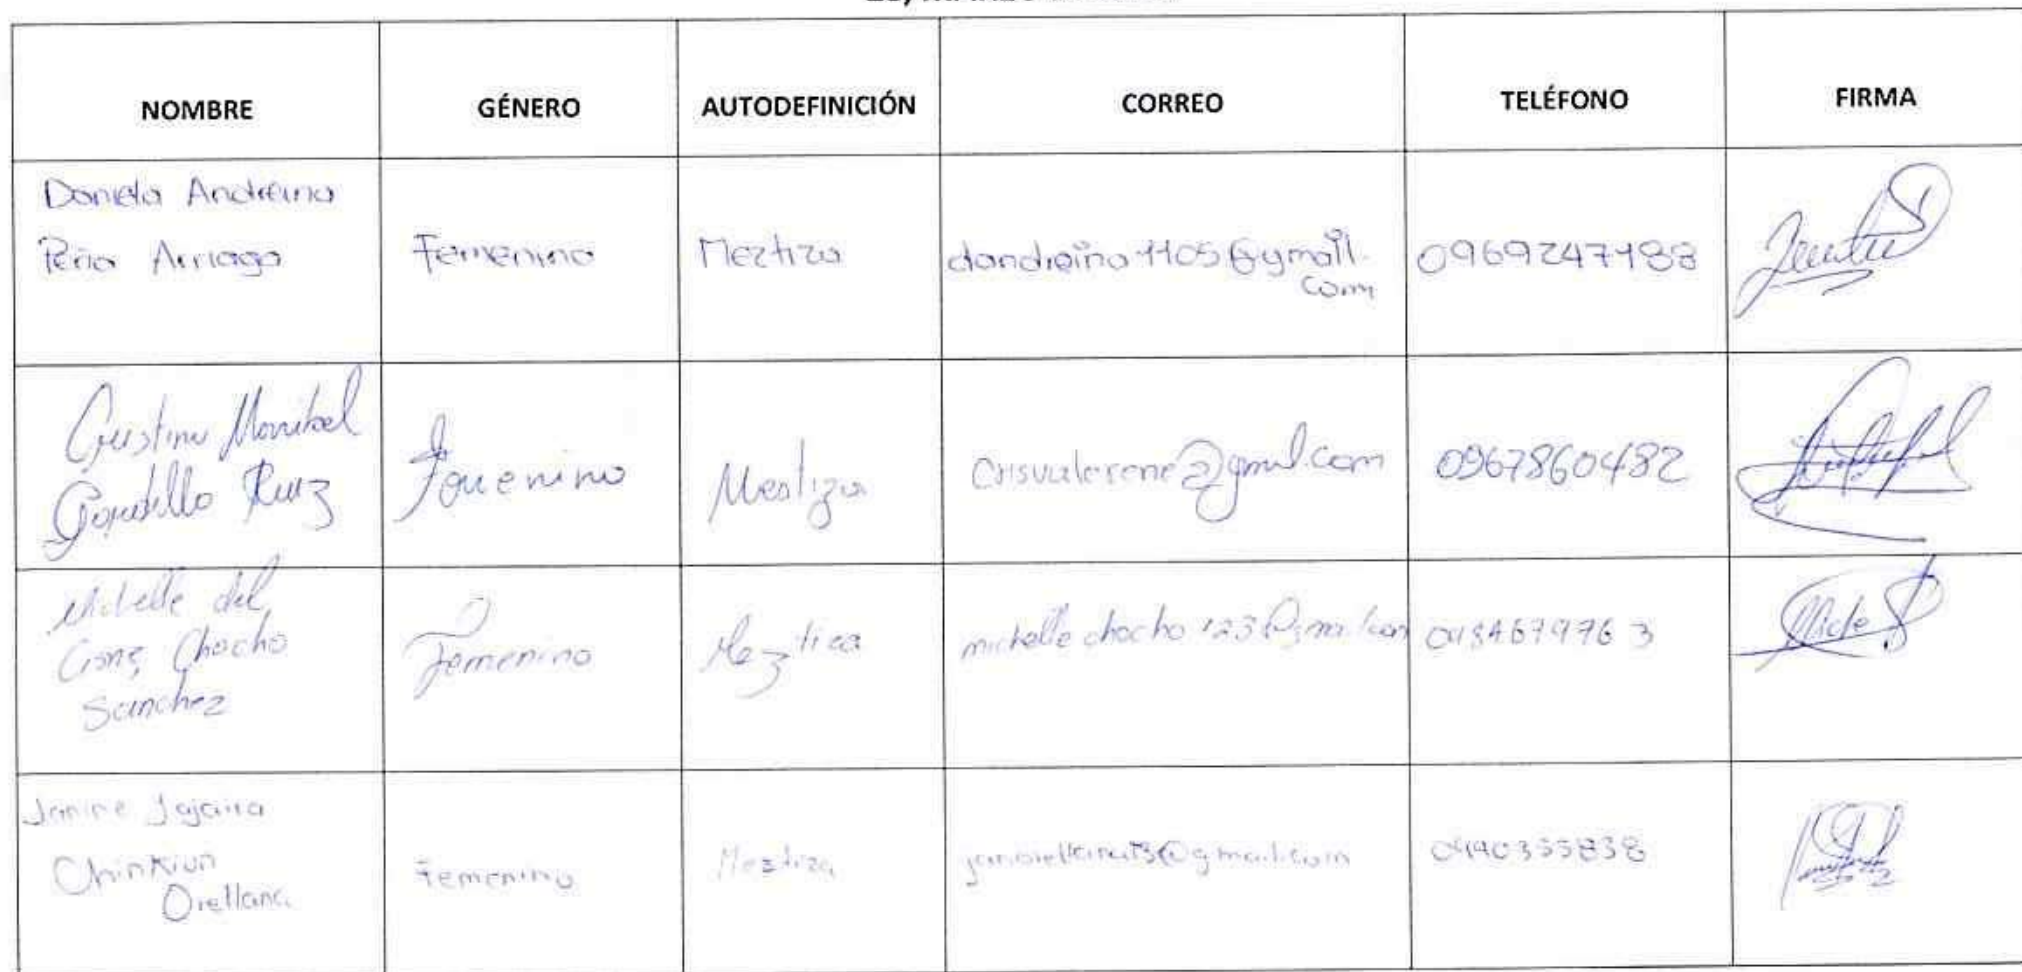 NOMBRE GÉNERO AUTODEFINICIÓN CORREO TELÉFONO FIRMA
Daniela Andreina
Peña Arriaga Femenino Meztiza dandreina1105@gmail.
com 0969247188
Cristina Maribel
Gordillo Ruiz Femenino Mestiza Crisvalerene@gmail.com 0967860482
Michelle del
Cisne Chocho
Sanchez Femenino Meztiza michellechocho123@gmail.com
Janine Jajaira
Chinkiun
Orellana Femenino Mestiza